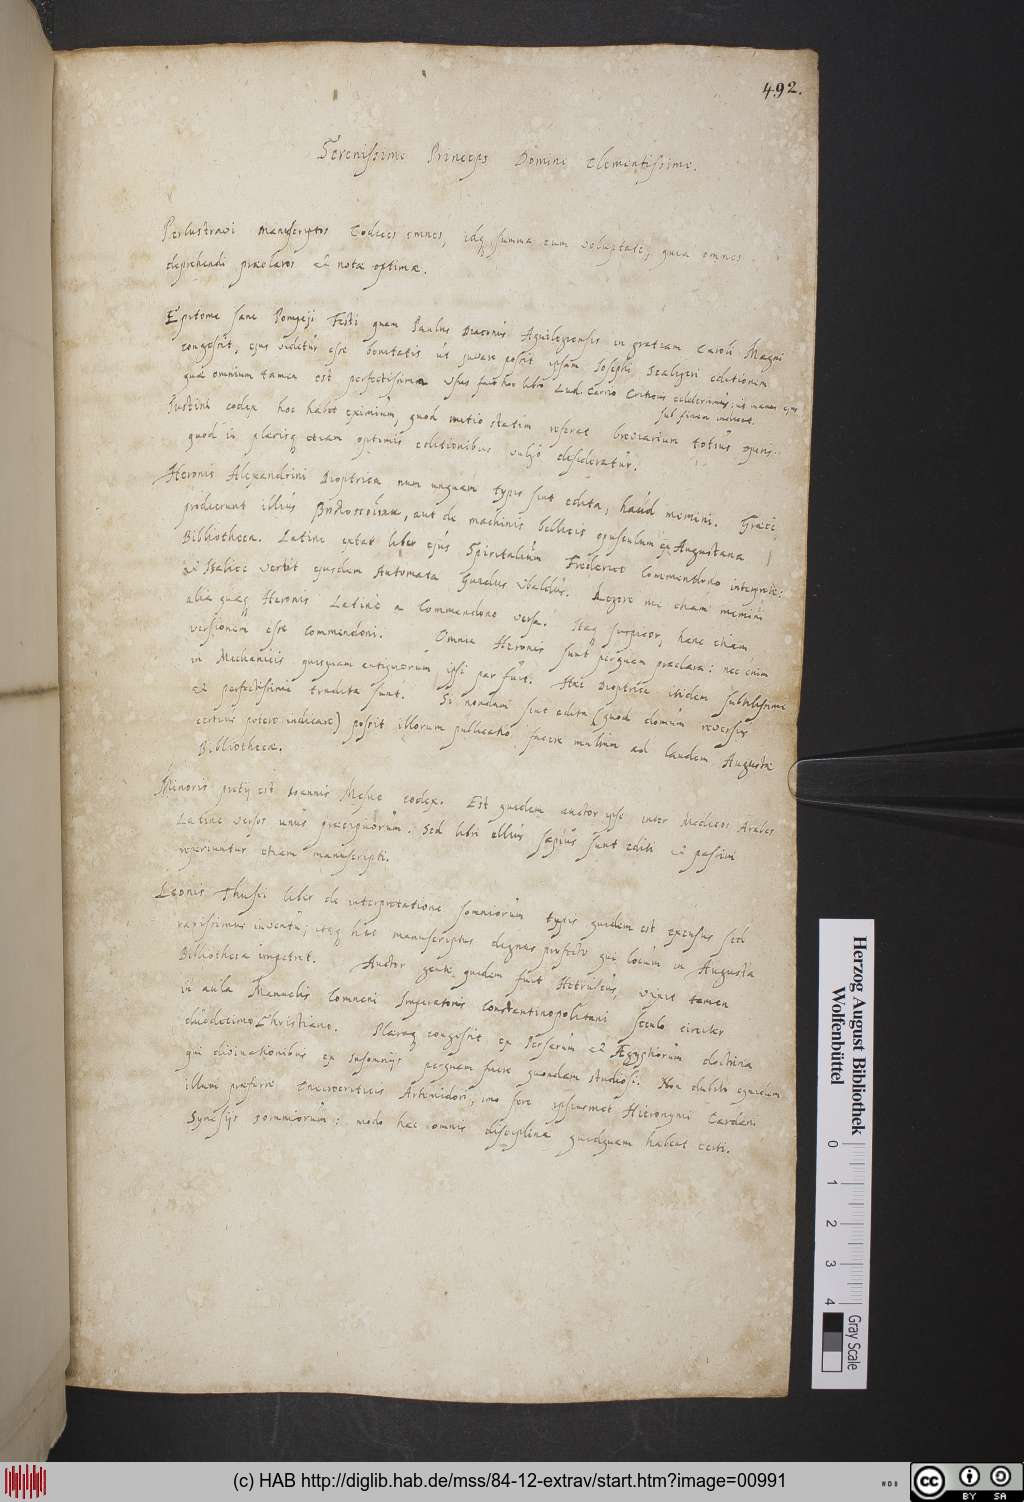 492.
Serenissime Princeps Domine Clementissime.
Perlustravi manuscriptos Codices omnes, idq, summa cum voluptate; quia omnes
deprehendi præclaros & notæ optimæ.
Epitome sane Pompeji Festi quam Paulus Diaconus Aquilegiensis in gratiam Caroli Magni
congessit, ejus videtur esse bonitatis ut juvare possit ipsam Josephi Scaligeri editionem
quæ omnium tamen est perfectissima. Usus fuit hoc libro Lud. Carrio Criticus celeberrimus; ut manus ejus
sub finem indicat.
Justini codex hoc habet eximium, quod initio statim referat breviarium totius operis..
quod in plerisq etiam optimis editionibus vulgo desideratur.
Heronis Alexandrini Dioptrica num unquam typis sint edita, haud memini. Græcè
prodierunt illius, aut de machinis bellicis opusculum ex Augustana
Bibliotheca. Latine extat liber ejus Spiritalium Frederico Commendino interprete;
& Italice vertit ejusdem Automata Guidus Ubaldus. Legere me etiam memini
alia quæq Heronis Latine a Commendono versa. Itaq suspicor, hanc etiam
versionem esse Commendoni. Omnia Heronis sunt perquam præclara: nec enim
in Mechanicis quisquam antiquorum ipsi par fuit. Hæc Dioptrice ibidem subtilissime
& perfectissime tradita sunt. Si nondum sint edita (quod domum reversus
certius potero indicare) possit illorum publicatio facere multum ad laudem Augustæ
Bibliothecæ.
Minoris pretij est Joannis Mesue codex. Est quidem auctor ipse inter Medicos Arabes
Latine versos unus præcipuorum. Sed libri illius sæpius sunt editi & passim
reperiuntur etiam manuscripti.
Leonis Thusci liber de interpretatione somniorum typis quidem est expressus sed
rarissimus inventu; itaq hic manuscriptus dignus profecto qui locum in Augusta
Bibliotheca impetret. Auctor gente quidem fuit Hetruscus, vixit tamen
in aula Manuelis Comneni Imperatoris Constantinopolitani seculo circiter
duodecimo Christiano. Pleraq congessit ex Persarum & Ægyptiorum doctrina
qui divinationibus ex insomnijs perquam fuere quondam studiosi. Non dubito equidem
illum præferre Oneirocriticis Artemidori, imo fere ipsiusmet Hieronymi Cardani
Synesijs somniorum: modo hæc omnis disciplina quidquam habeat certi.
Herzog August Bibliothek
Wolfenbüttel
0 1 2 3 4
Gray Scale
(c) HAB http://diglib.hab.de/mss/84-12-extrav/start.htm?image=00991
WDB
CC BY SA